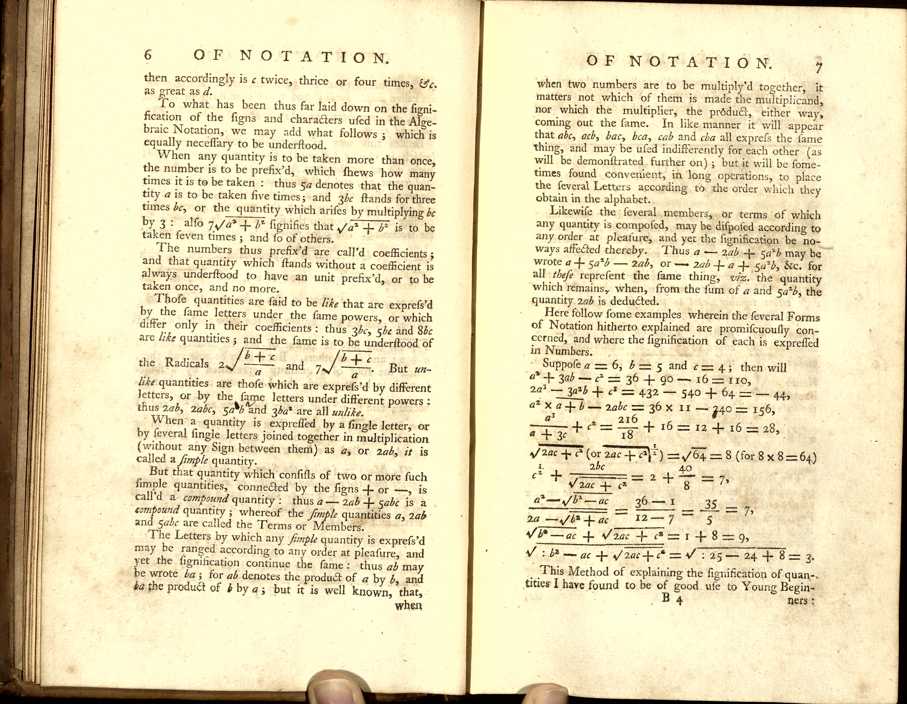 6 OF NOTATION.
then accordingly is c twice, thrice or four times, &c.
as great as d.
To what has been thus far laid down on the ſigni-
fication of the ſigns and characters uſed in the Alge-
braic Notation, we may add what follows ; which is
equally neceſſary to be underſtood.
When any quantity is to be taken more than once,
the number is to be prefix'd, which ſhews how many
times it is to be taken : thus 5a denotes that the quan-
tity a is to be taken five times; and 3bc ſtands for three
times bc, or the quantity which ariſes by multiplying bc
by 3 : alſo 7√a² + b² ſignifies that √a² + b² is to be
taken ſeven times ; and ſo of others.
The numbers thus prefix'd are call'd coefficients ;
and that quantity which ſtands without a coefficient is
always underſtood to have an unit prefix'd, or to be
taken once, and no more.
Thoſe quantities are ſaid to be like that are expreſs'd
by the ſame letters under the ſame powers, or which
differ only in their coefficients : thus 3bc, 5bc and 8bc
are like quantities ; and the ſame is to be underſtood of
the Radicals 2√(b + c)/a and 7√(b + c)/a. But un-
like quantities are thoſe which are expreſs'd by different
letters, or by the ſame letters under different powers :
thus 2ab, 2abc, 5a²b and 3ba² are all unlike.
When a quantity is expreſſed by a ſingle letter, or
by ſeveral ſingle letters joined together in multiplication
(without any Sign between them) as a, or 2ab, it is
called a ſimple quantity.
But that quantity which conſiſts of two or more ſuch
ſimple quantities, connected by the ſigns + or —, is
call'd a compound quantity : thus a — 2ab + 5abc is a
compound quantity ; whereof the ſimple quantities a, 2ab
and 5abc are called the Terms or Members.
The Letters by which any ſimple quantity is expreſs'd
may be ranged according to any order at pleaſure, and
yet the ſignification continue the ſame : thus ab may
be wrote ba ; for ab denotes the product of a by b, and
ba the product of b by a ; but it is well known, that,
when
OF NOTATION. 7
when two numbers are to be multiply'd together, it
matters not which of them is made the multiplicand,
nor which the multiplier, the product, either way,
coming out the ſame. In like manner it will appear
that abc, acb, bac, bca, cab and cba all expreſs the ſame
thing, and may be uſed indifferently for each other (as
will be demonſtrated further on) ; but it will be ſome-
times found convenient, in long operations, to place
the ſeveral Letters according to the order which they
obtain in the alphabet.
Likewiſe the ſeveral members, or terms of which
any quantity is compoſed, may be diſpoſed according to
any order at pleaſure, and yet the ſignification be no-
ways affected thereby. Thus a — 2ab + 5a²b may be
wrote a + 5a²b — 2ab, or — 2ab + a + 5a²b, &c. for
all theſe repreſent the ſame thing, viz. the quantity
which remains, when, from the ſum of a and 5a²b, the
quantity 2ab is deducted.
Here follow ſome examples wherein the ſeveral Forms
of Notation hitherto explained are promiſcuouſly con-
cerned, and where the ſignification of each is expreſſed
in Numbers.
Suppoſe a = 6, b = 5 and c = 4 ; then will
a² + 3ab — c² = 36 + 90 — 16 = 110,
2a³ — 3a²b + c³ = 432 — 540 + 64 = — 44,
a² x a + b — 2abc = 36 x 11 — 240 = 156,
a³/(a + 3c) + c² = 216/18 + 16 = 12 + 16 = 28,
√2ac + c² (or 2ac + c²|½) = √64 = 8 (for 8 x 8 = 64)
c½ + 2bc/√2ac + c² = 2 + 40/8 = 7,
(a² — √b² — ac)/(2a — √b² + ac) = (36 — 1)/(12 — 7) = 35/5 = 7,
√b² — ac + √2ac + c² = 1 + 8 = 9,
√ : b² — ac + √2ac + c² = √ : 25 — 24 + 8 = 3.
This Method of explaining the ſignification of quan-
tities I have found to be of good uſe to Young Begin-
B 4 ners :